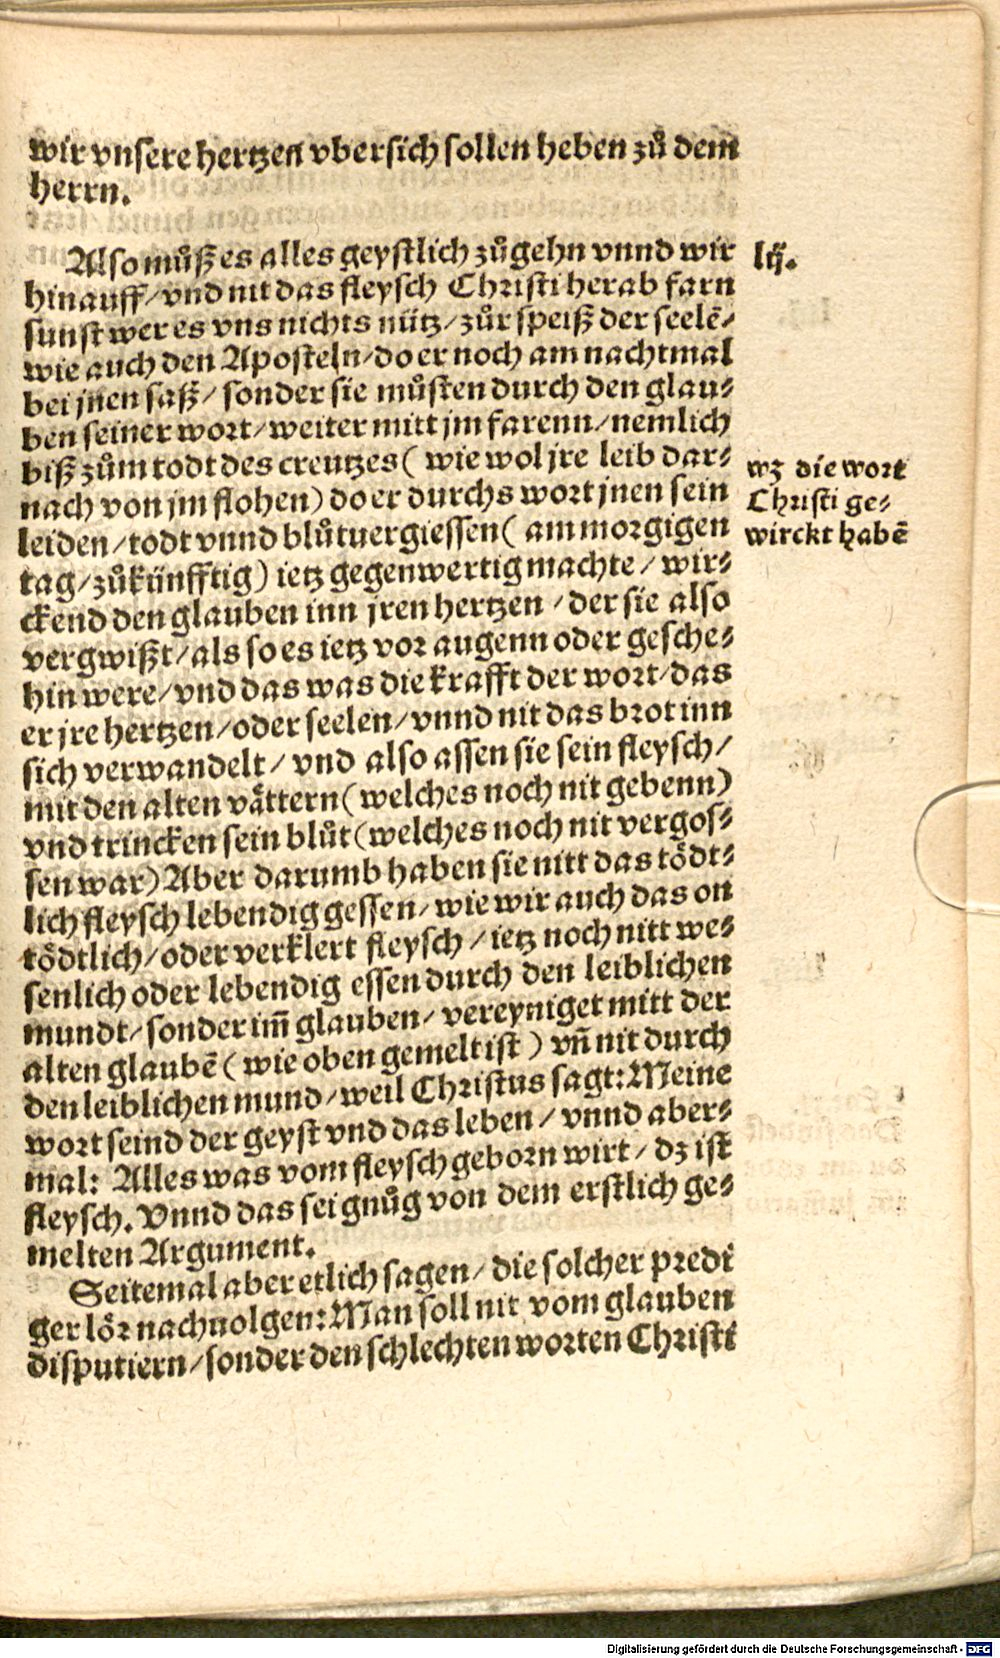 wir vnsere hertzen vbersich sollen heben zů dem
herrn.
Also můß es alles geystlich zůgehn vnnd wir
hinauff/vnd nit das fleysch Christi herab farn
sunst wer es vns nichts nütz/zůr speiß der seelē/
wie auch den Aposteln/do er noch am nachtmal
bei jnen saß/ sonder sie můsten durch den glau⸗
ben seiner wort/weiter mitt jm farenn/nemlich
biß zům todt des creutzes( wie wol jre leib dar⸗
nach von jm flohen) do er durchs wort jnen sein
leiden/todt vnnd blůtuergiessen( am morgigen
tag/zůkünfftig) ietz gegenwertig machte/ wir⸗
ckend den glauben inn jren hertzen /der sie also
vergwißt/als so es ietz vor augenn oder gesche⸗
hin were/vnd das was die krafft der wort/das
er jre hertzen/oder seelen/vnnd nit das brot inn
sich verwandelt/ vnd also assen sie sein fleysch/
mit den alten våttern(welches noch nit gebenn)
vnd trincken sein blůt(welches noch nit vergos⸗
sen war) Aber darumb haben sie nitt das tödt⸗
lich fleysch lebendig gessen/wie wir auch das on
tödtlich/oder verklert fleysch /ietz noch nitt we⸗
senlich oder lebendig essen durch den leiblichen
mundt/sonder im̄ glauben/ vereyniget mitt der
alten glaubē( wie oben gemelt ist ) vn̄ nit durch
den leiblichen mund/weil Christus sagt:Meine
wort seind der geyst vnd das leben/ vnnd aber⸗
mal: Alles was vom fleysch geborn wirt/ dz ist
fleysch. Vnnd das sei gnůg von dem erstlich ge⸗
melten Argument.
Seitemal aber etlich sagen/ die solcher predi
ger lör nachuolgen:Man soll nit vom glauben
disputiern/sonder den schlechten worten Christi
lij.
wz die wort
Christi ge⸗
wirckt habē
Digitalisierung gefördert durch die Deutsche Forschungsgemeinschaft - DFG